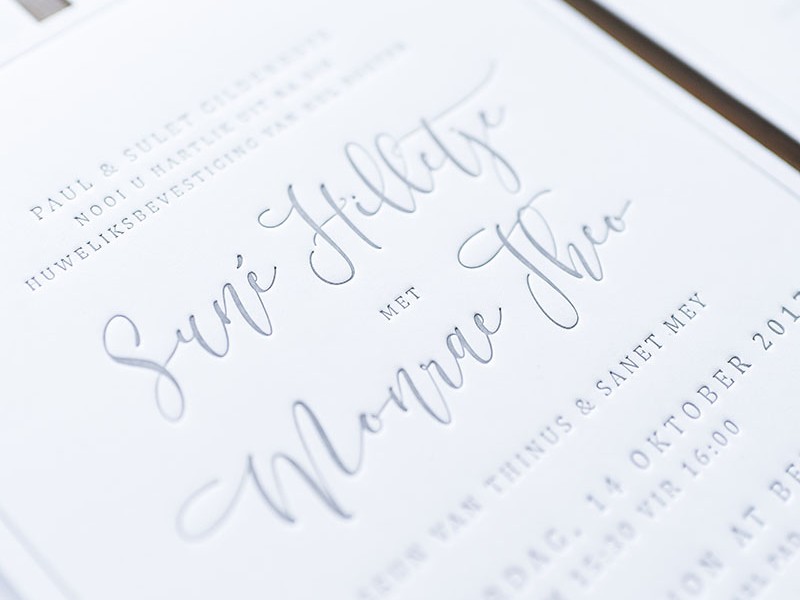 PAUL & SULET GILDENHUYS
NOOI U HARTLIK UIT NA DIE
HUWELIKSBEVESTIGING VAN HUL DOGTER
Suné Hilletje
MET
Monrae Theo
SEUN VAN THINUS & SANET MEY
RDAG, 14 OKTOBER 2017
15:30 VIR 16:00
ON AT BE